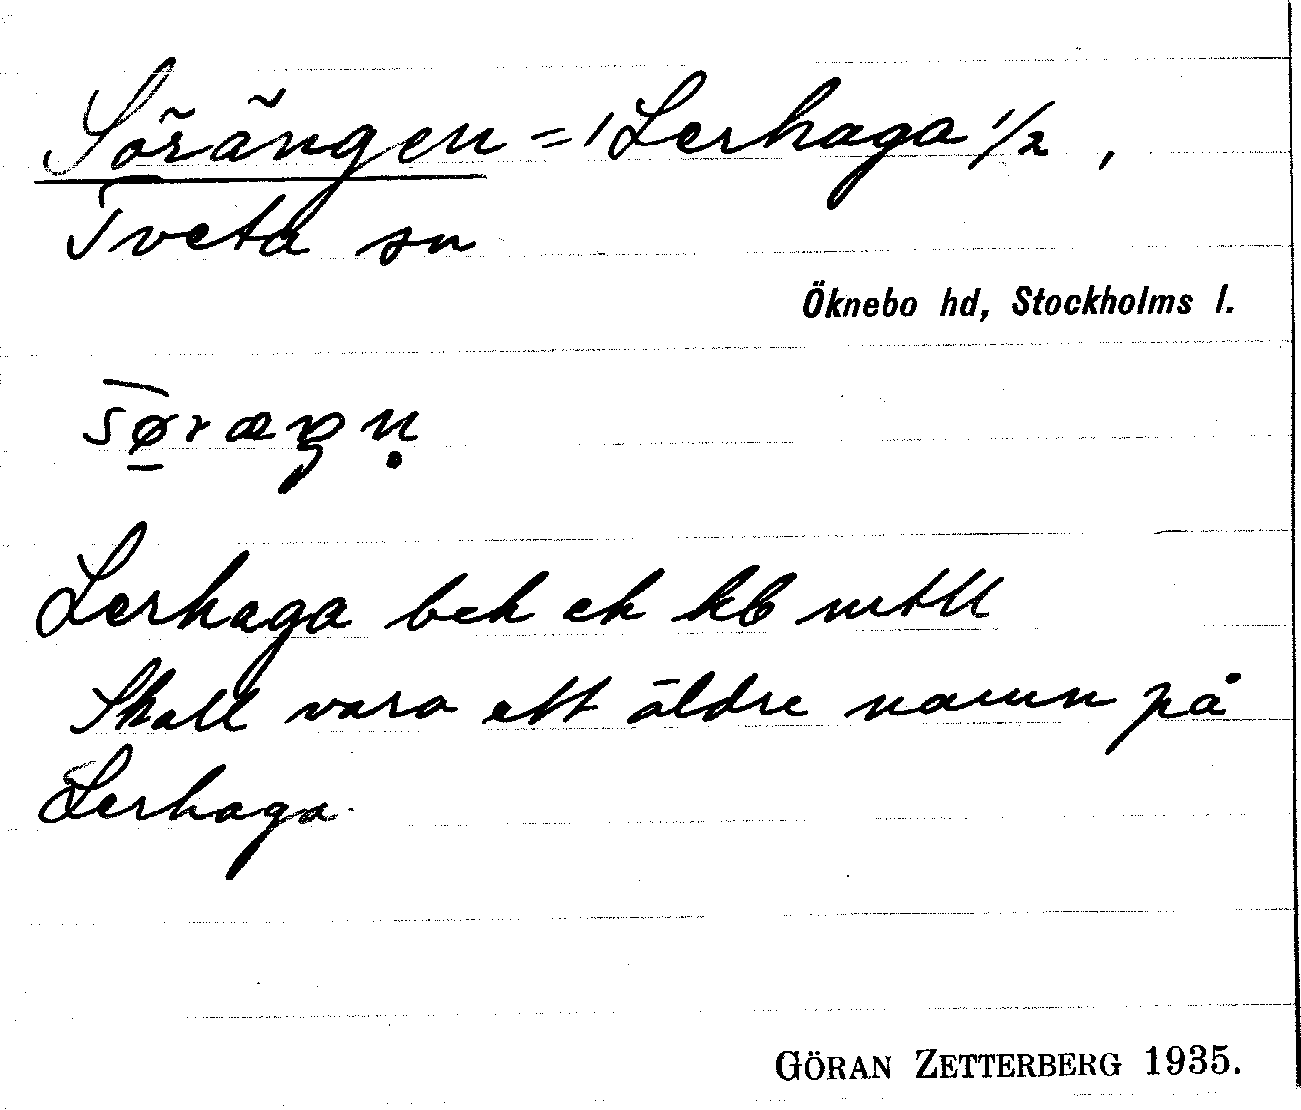 Sörängen = 1 Lerhaga 1/2,
Tveta sn
Öknebo hd, Stockholms l.
Lerhaga bek ek kb mtll
Skall vara ett äldre namn på
Lerhaga.
GÖRAN ZETTERBERG 1935.